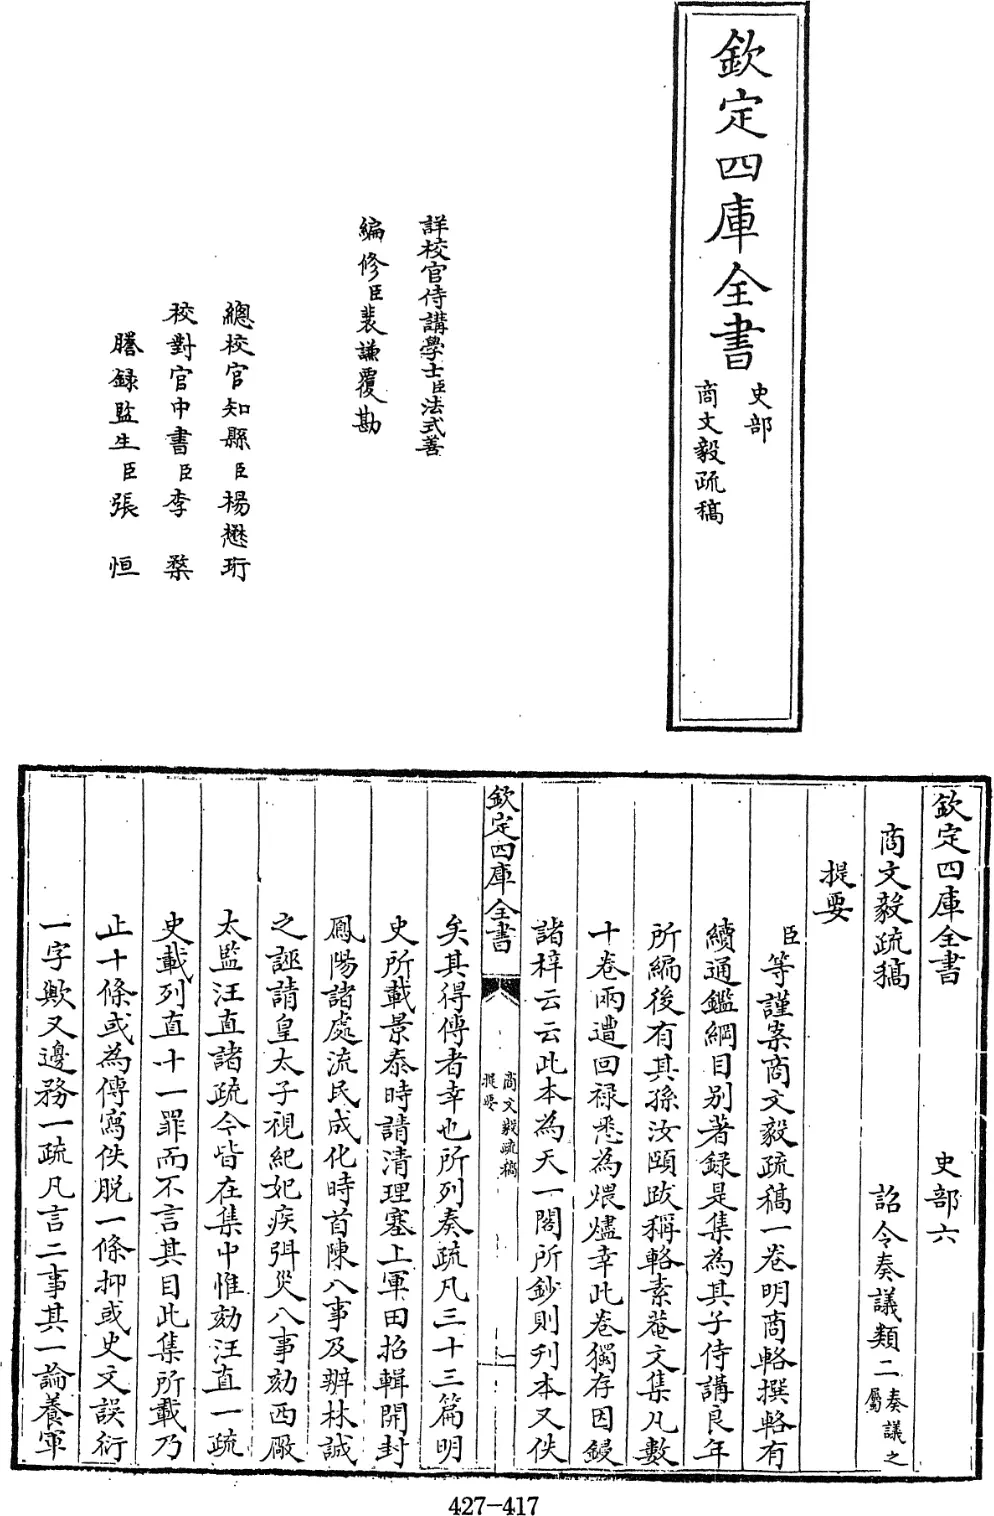 欽定四庫全書
史部
商文毅疏稿
詳校官侍講學士臣法式善
編修臣裴謙覆勘
總校官知縣臣楊懋珩
校對官中書臣李楘
謄録監生臣張恒
欽定四庫全書 史部六
商文毅疏稿 詔令奏議類二奏議之屬
提要
臣等謹案商文毅疏稿一卷明商輅撰輅有
續通鑑綱目别著録是集為其子侍講良年
所編後有其孫汝頤跋稱輅素菴文集凡數
十卷兩遭回禄悉為煨燼幸此卷獨存因鋟
諸梓云云此本為天一閣所鈔則刋本又佚
欽定四庫全書 商文毅疏稿 提要 一
矣其得傳者幸也所列奏疏凡三十三篇明
史所載景泰時請清理塞上軍田招輯開封
鳳陽諸處流民成化時首陳八事及辨林誠
之誣請皇太子視紀妃疾弭災八事劾西厰
太監汪直諸疏今皆在集中惟劾汪直一疏
史載列直十一罪而不言其目此集所載乃
止十條或為傳寫佚脱一條抑或史文誤衍
一字歟又邊務一疏凡言二事其一論養軍
427-417